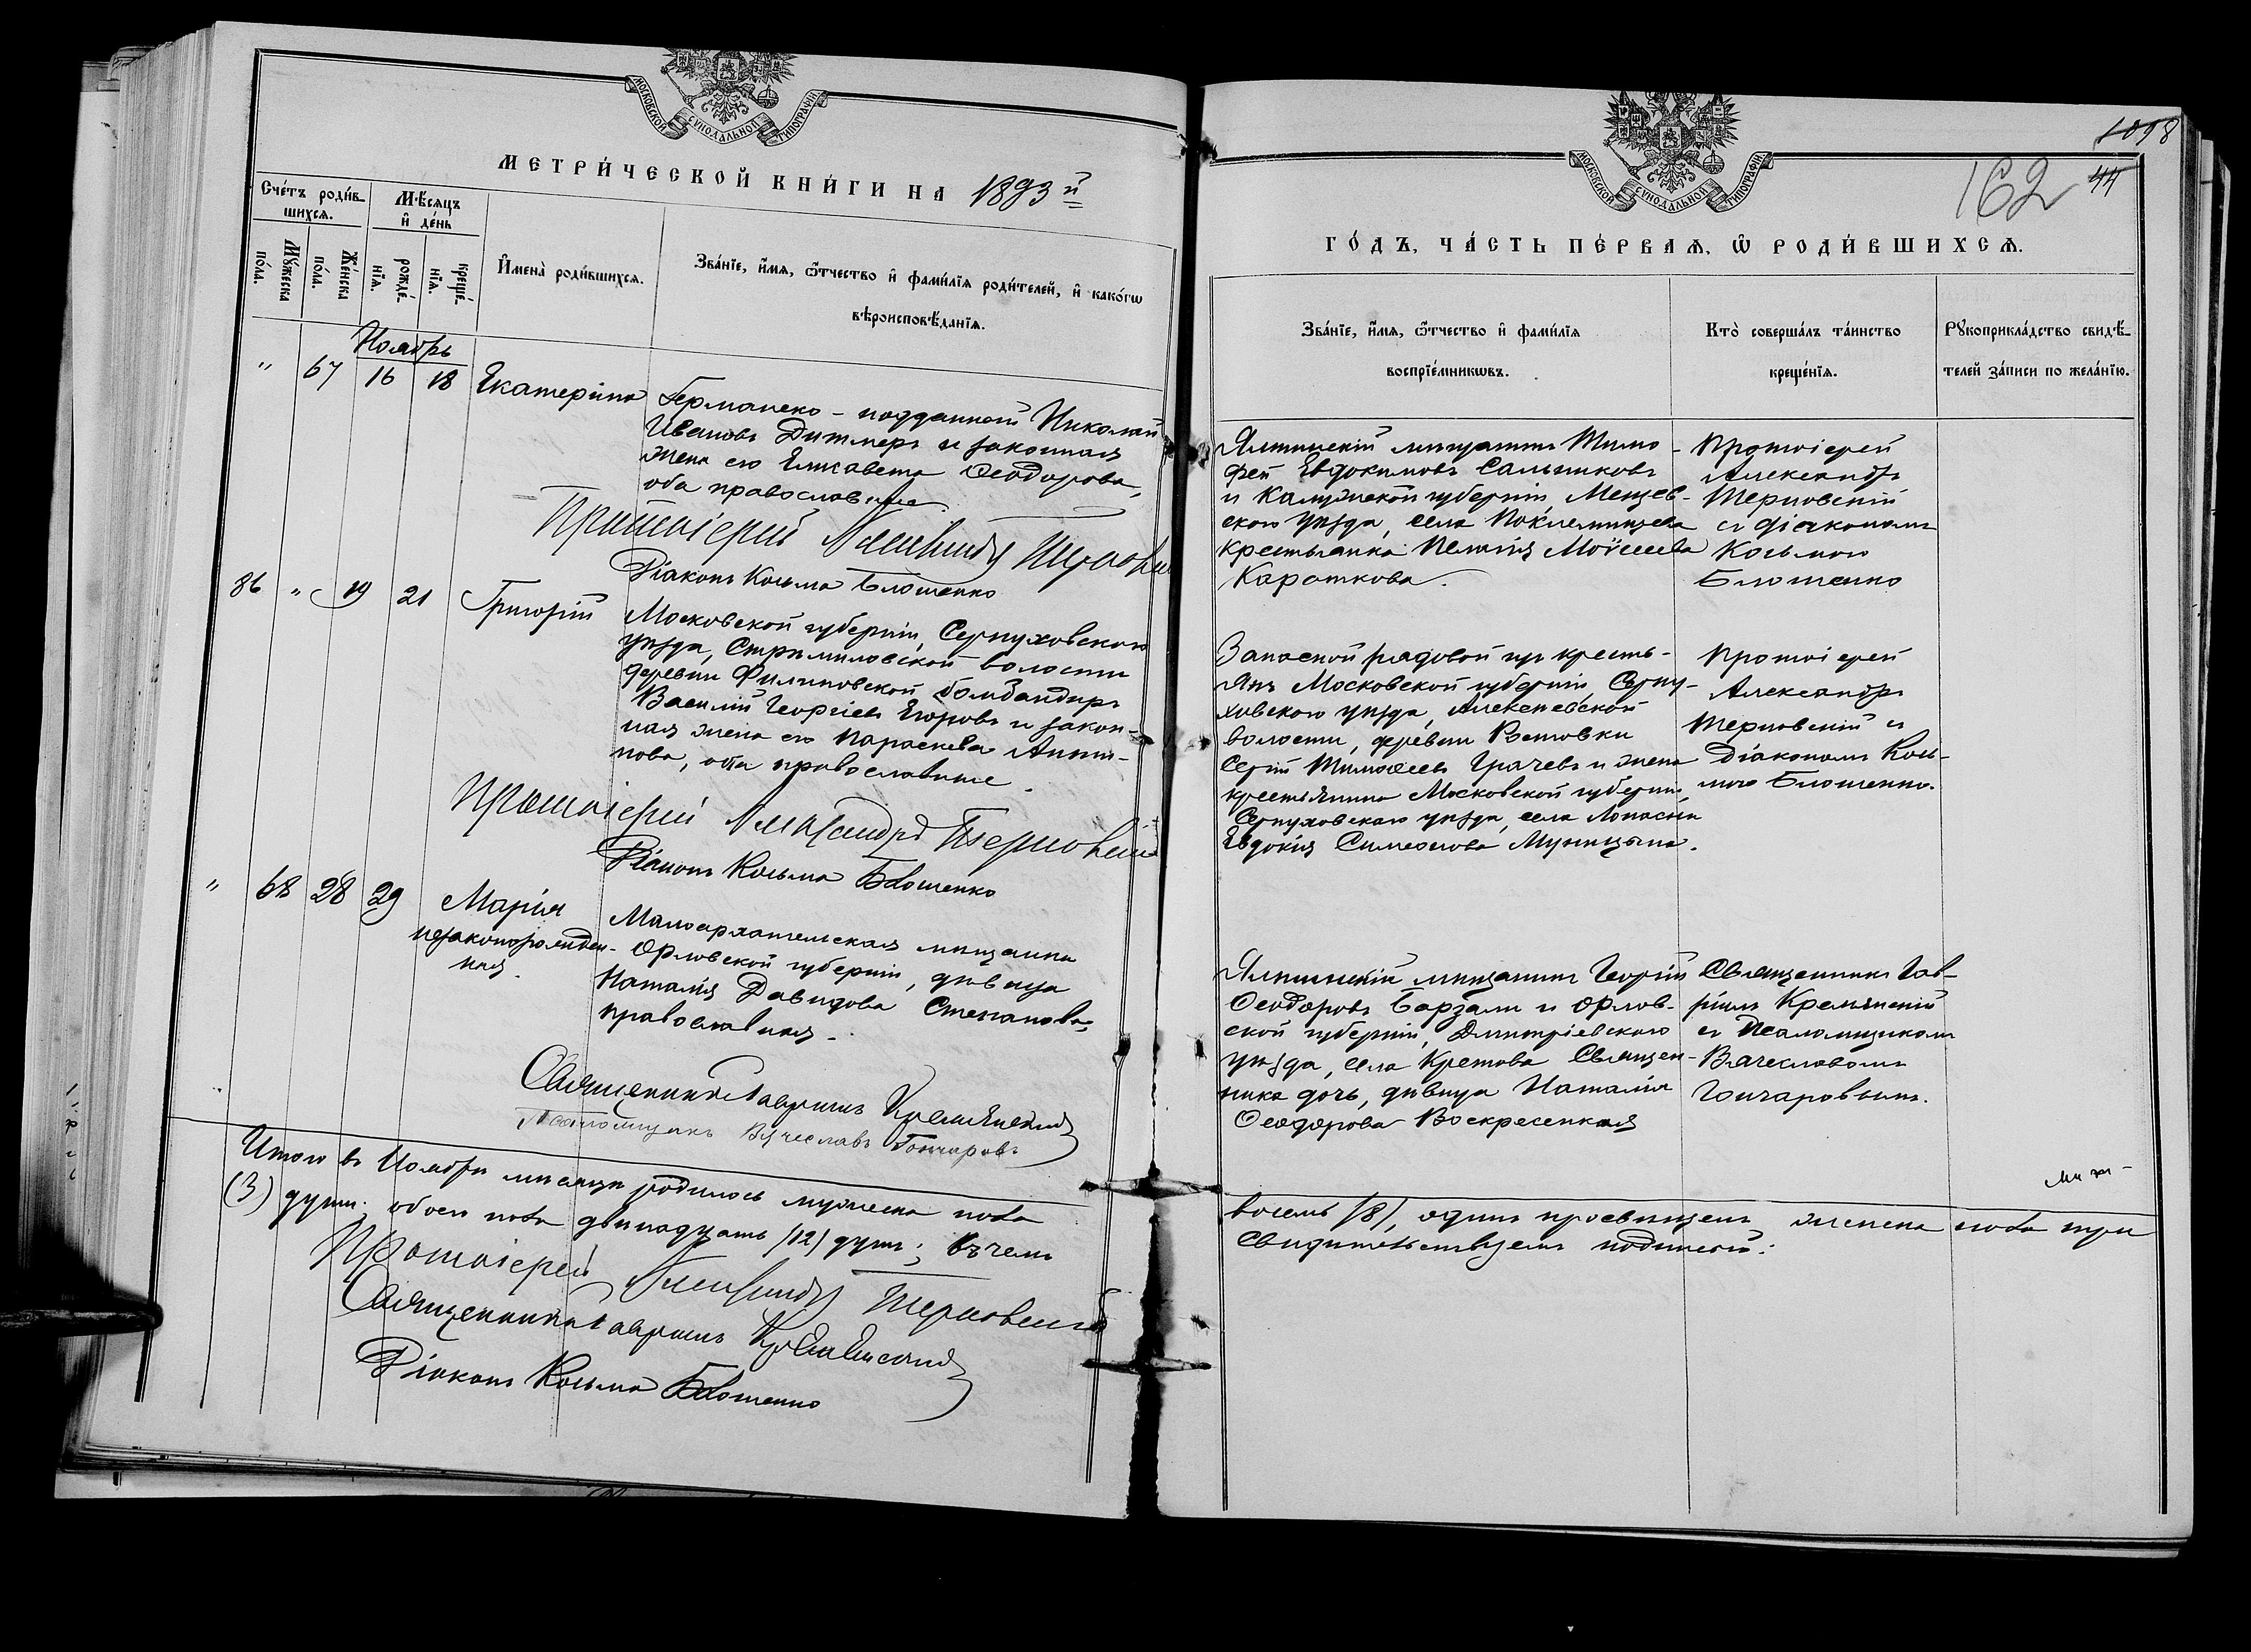 МОСКОВСКОЙ СѴНОДАЛЬНОЙ ТИПОГРАФІИ
МЕТРИ́ЧЕСКОЙ КНИ́ГИ НА 1893 й
Сче́тъ роди́в-
шихсѧ.
Мѣ́сяцъ
и҆ де́нь
Мꙋ́жеска
по́ла.
Же́нска
по́ла.
рожде́-
нїѧ.
креще́-
нїѧ.
И҆мена̀ роди́вшихсѧ.
Зва́нїе, и҆́мѧ, ѻ҆́тчество и҆ фами́лїѧ роди́телей, и҆ како́гѡ
вѣроисповѣ́данїѧ.
Ноябрь
" 67 16 18 Екатерина
Германско-подданный Николай
Ивановъ Дитмеръ и законная
жена его Елисавета Ѳеодорова,
оба православные.
Протоіерей Александръ Терновскій
Діаконъ Козьма Блошенко
86 " 19 21 Григорій
Московской губерніи, Серпуховскаго
уѣзда, Стремиловской волости
деревни Филиповской, бомбандиръ
Василій Георгіевъ Егоровъ и закон-
ная жена его Параскева Анти-
пова, оба православные.
Протоіерей Александръ Терновскій
Діаконъ Козьма Блошенко
" 68 28 29 Марія
незаконорожден-
ная.
Малоархангельская мѣщанка
Орловской губерніи, дѣвица
Наталія Давидова Степанова,
православная.
Священникъ Гавріилъ Кремянскій
Псаломщикъ Вячеславъ Гончаровъ
Итого въ Ноябрѣ мѣсяцѣ родилось мужеска пола
(3) души, обоего пола двѣнадцать /12/ душъ; въ чемъ
Протоіерей Александръ Терновскій
Священникъ Гавріилъ Кремянскій
Діаконъ Козьма Блошенко
1098
162 44
МОСКОВСКОЙ СѴНОДАЛЬНОЙ ТИПОГРАФІИ
ГО́ДЪ, ЧА́СТЬ ПЕ́РВАѦ, Ѡ҆ РОДИ́ВШИХСѦ.
Зва́нїе, и҆́мѧ, ѻ҆́тчество и҆ фами́лїѧ
воспрїе́мникѡвъ.
Кто̀ соверша́лъ та́инство
креще́нїѧ.
Рꙋкоприкла́дство свидѣ́-
телей за́писи по жела́нїю.
Ялтинскій мѣщанинъ Тимо-
фей Евдокимовъ Сальниковъ
и Калужской губерніи Мещев-
скаго уѣзда, села
крестьянка Пелагія Моѵсеева
Короткова.
Протоіерей
Александръ
Терновскій
съ діакономъ
Козьмою
Блошенко
Запасной рядовой изъ кресть-
янъ Московской губерніи, Серпу-
ховскаго уѣзда, Алексѣевской
волости, деревни Ростовки
Сергій Тимоѳеевъ Грачевъ и жена
крестьянина Московской губерніи,
Серпуховскаго уѣзда, села Лопасни
Евдокія Симеонова
Протоіерей
Александръ
Терновскій съ
Діакономъ Козь-
мою Блошенко.
Ялтинскій мѣщанинъ Георгій
Ѳеодоровъ Барзали и Орлов-
ской губерніи, Дмитріевскаго
уѣзда, села Кретова Священ-
ника дочь, дѣвица Наталія
Ѳеодорова Воскресенская
Священникъ Гав-
ріилъ Кремянскій
съ Псаломщикомъ
Вячеславомъ
Гончаровымъ.
восемь /8/, одинъ просвѣщенъ, женска пола три
свидѣтельствуемъ подписью: